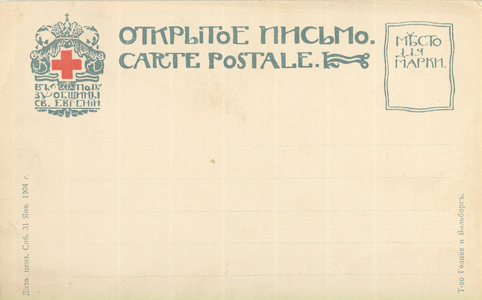 ОТКРЫТОЕ ПИСЬМО.
CARTE POSTALE.
МѢСТО
ДЛЯ
МАРКИ.
ВЪ ПОЛЬ
ЗУ ОБЩИНЫ
СВ. ЕВГЕНІИ
Дозв. ценз. Спб. 31 Янв. 1904 г.
Т-во Голике и Вильборгъ.